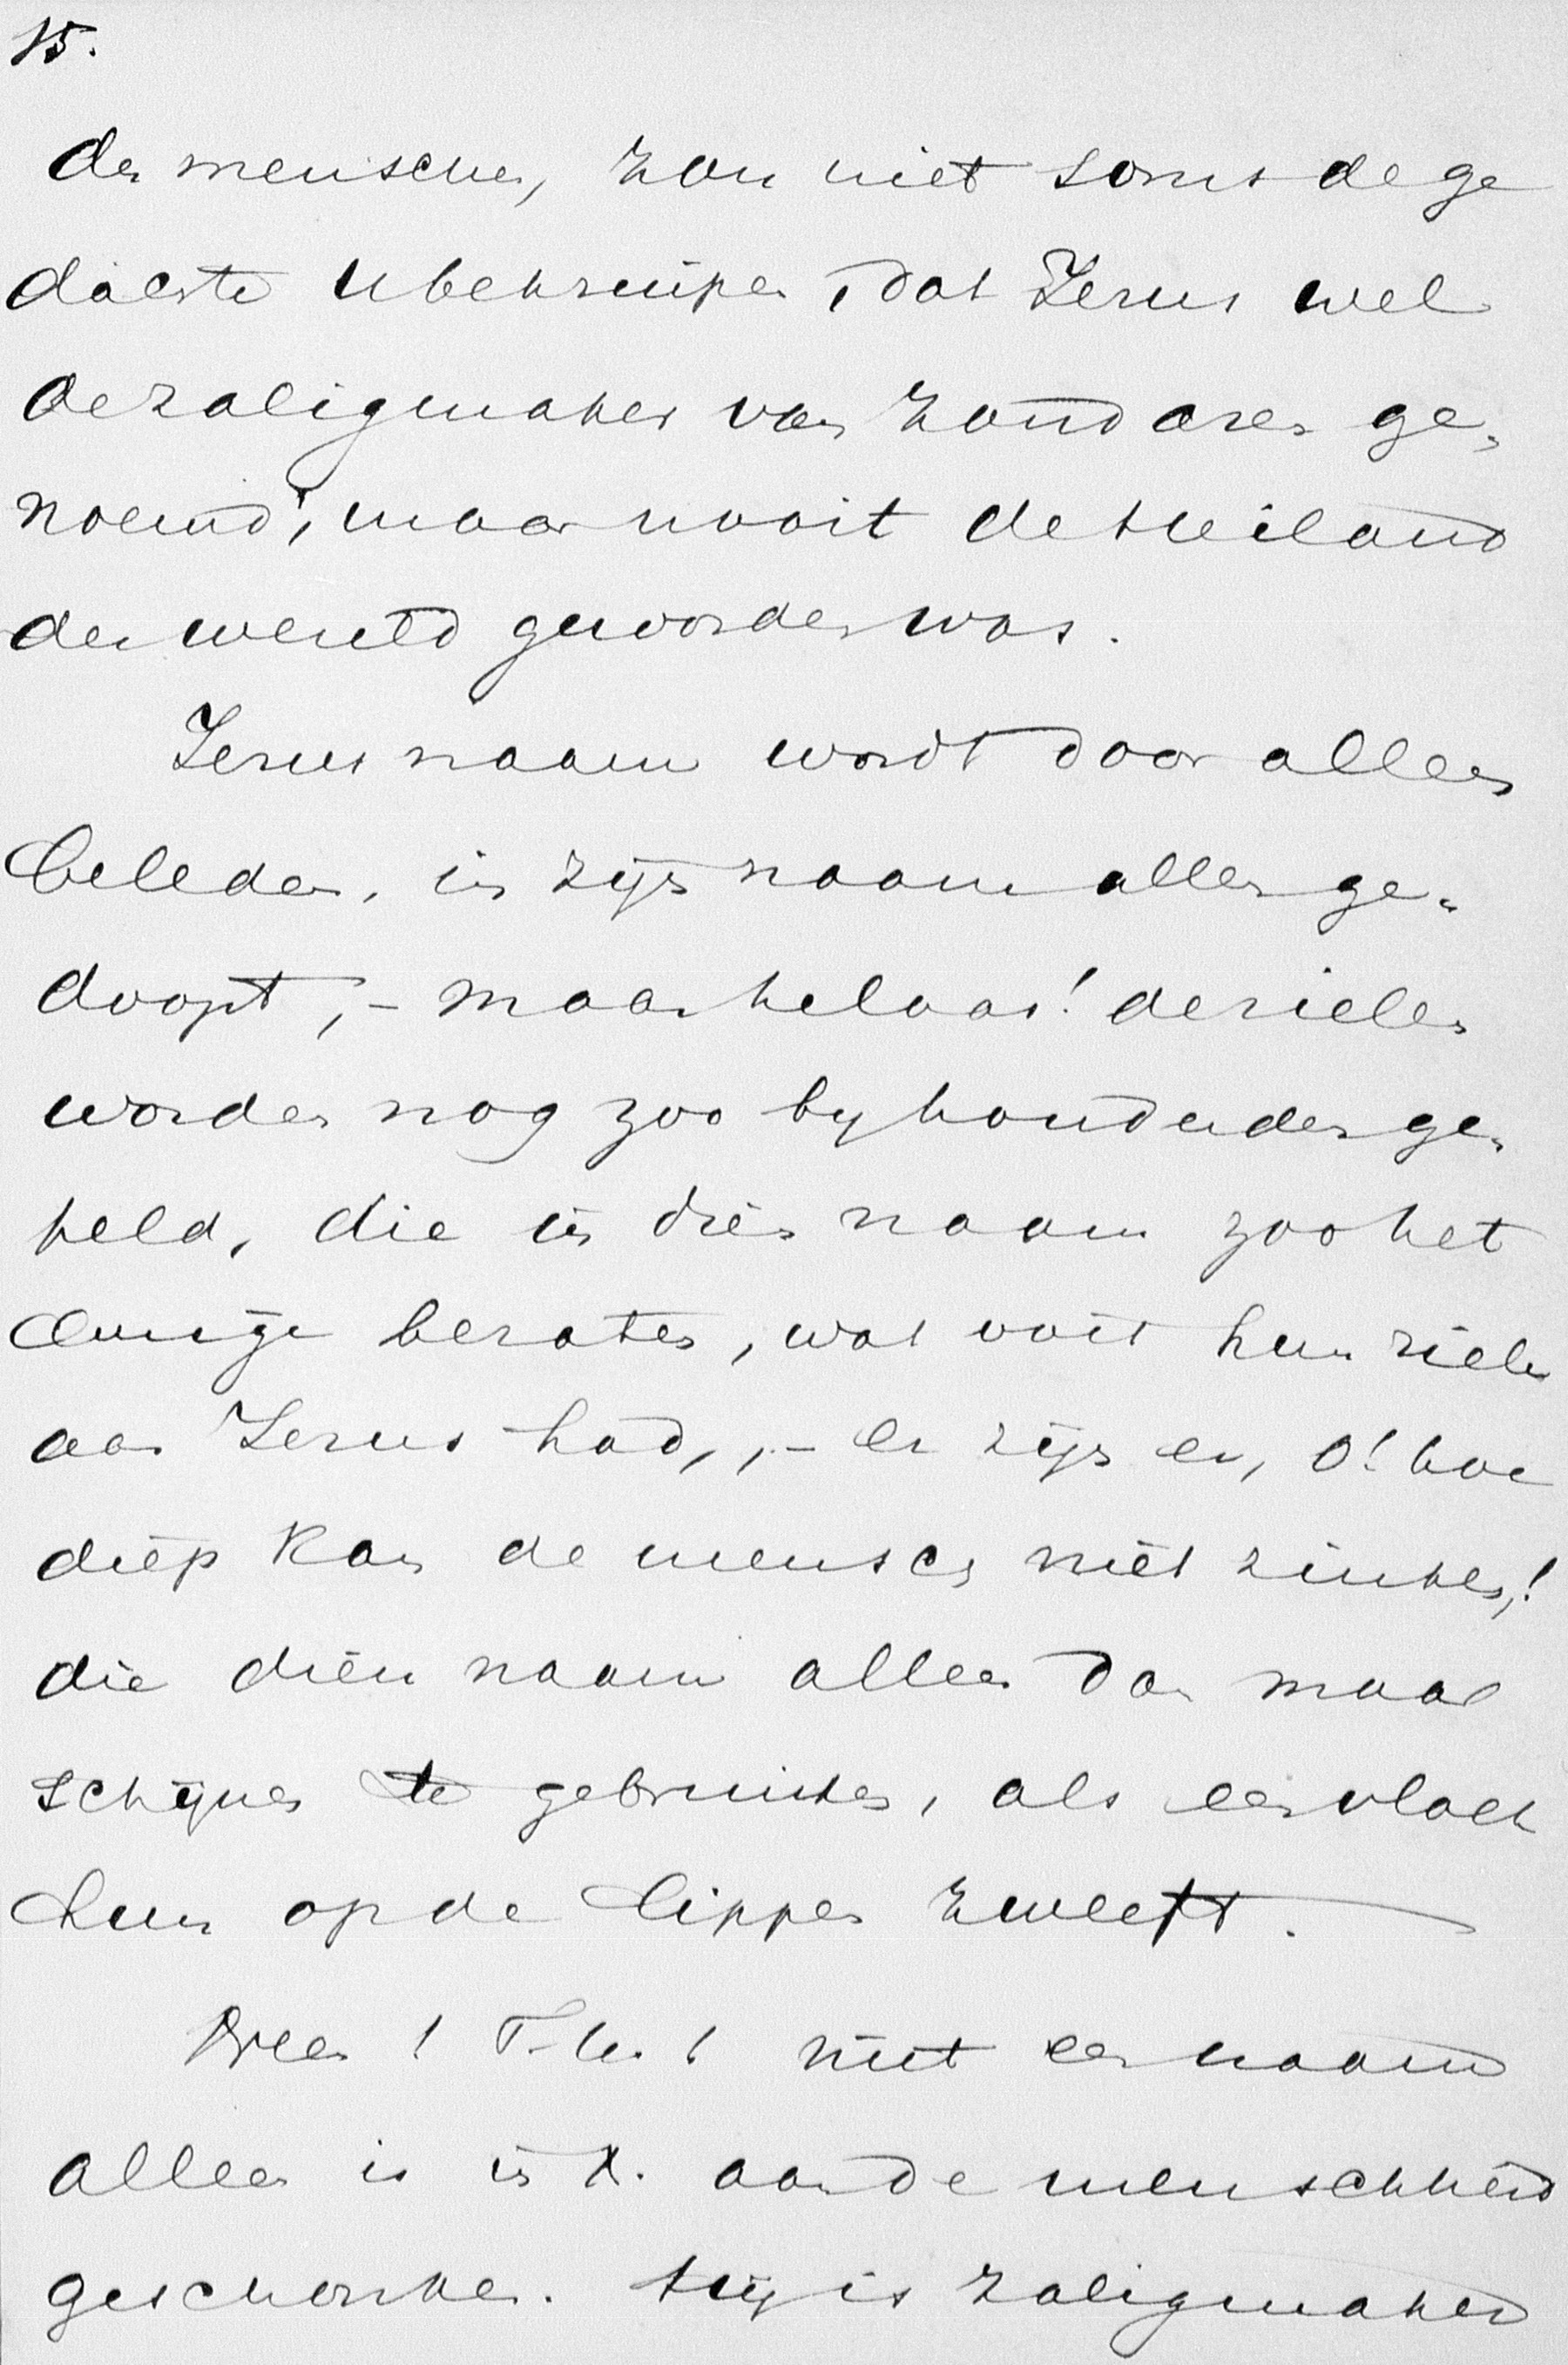 15.
der menschen, zou niet soms de ge
dachte u bekruipen, dat Jezus wel
de zaligmaker van zondaren ge-
noemd, maar nooit de Heiland
der wereld geworden was.
Jezus naam wordt door allen
beleden, in zijn naam allen ge-
doopt, - maar helaas! de zielen
worden nog zoo by honderden ge-
teld, die in dien naam zoo het
eenige bezaten, wat ooit hun ziel
aan Jezus had, - er zijn er, o! hoe
diep kan de mensch niet zinken!
die dien naam alleen dan maar
schijnen te gebruiken, als een vloek
hun op de lippen zweeft.
Neen! niet een naam
alleen is in X. aan de menschheid
geschonken. Hij is zaligmaker